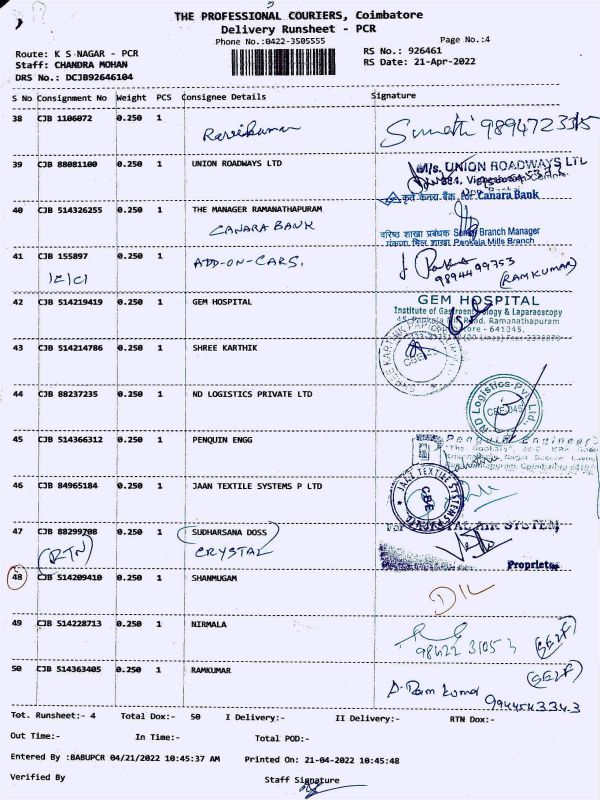 THE PROFESSIONAL COURIERS, Coimbatore
Delivery Runsheet - PCR
Phone No.:0422-3505555
Page No.:4
Route: K S NAGAR - PCR
RS No.: 926461
Staff: CHANDRA MOHAN
RS Date: 21-Apr-2022
DRS No.: DCJB92646104
S No Consignment No Weight PCS Consignee Details Signature
38 CJB 1106072 0.250 1
Ravikumar
39 CJB 88081100 0.250 1 UNION ROADWAYS LTD
M/s. UNION ROADWAYS LTD
कृते केनरा बैंक, for Canara Bank
40 CJB 514326255 0.250 1 THE MANAGER RAMANATHAPURAM
CANARA BANK
वरिष्ठ शाखा प्रबंधक Senior Branch Manager
पंकजा मिल शाखा Pankaja Mills Branch
41 CJB 155897 0.250 1 ADD-ON-CARS.
9894499753
(RAMKUMAR)
42 CJB 514219419 0.250 1 GEM HOSPITAL
GEM HOSPITAL
Institute of Gastroenterology & Laparoscopy
Ramanathapuram
641045.
43 CJB 514214786 0.250 1 SHREE KARTHIK
44 CJB 88237235 0.250 1 ND LOGISTICS PRIVATE LTD
ND Logistics Pvt. Ltd.,
45 CJB 514366312 0.250 1 PENQUIN ENGG
46 CJB 84965184 0.250 1 JAAN TEXTILE SYSTEMS P LTD
JAAN TEXTILE SYSTEMS
CBE
47 CJB 88299708 0.250 1 SUDHARSANA DOSS
(RTN) CRYSTAL
For CRYSTAL AIR SYSTEM,
Proprietor
48 CJB 514209410 0.250 1 SHANMUGAM
D/L
49 CJB 514228713 0.250 1 NIRMALA
98422 31053 (SELF)
50 CJB 514363405 0.250 1 RAMKUMAR
(SELF)
Tot. Runsheet:- 4 Total Dox:- 50 I Delivery:- II Delivery:- RTN Dox:-
Out Time:- In Time:- Total POD:-
Entered By :BABUPCR 04/21/2022 10:45:37 AM Printed On: 21-04-2022 10:45:48
Verified By Staff Signature